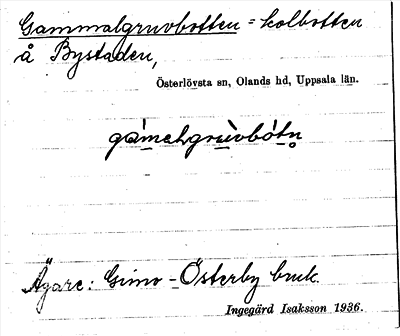 Gammalgruvbotten = kolbotten
å Bystaden,
Österlövsta sn, Olands hd, Uppsala län.
gámalgrùvbótn̥
Ägare: Gimo-Österby bruk.
Ingegärd Isaksson 1936.